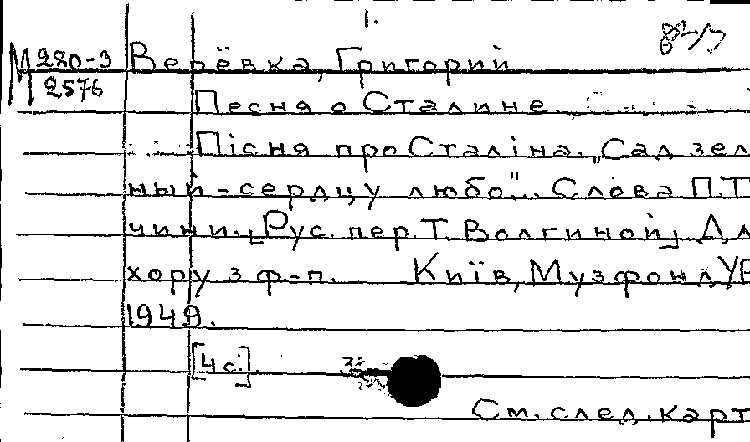 1.
М 280-3
2576
Верёвка, Григорий
Песня о Сталине
Пісня про Сталіна. „Сад зел
ный-сердцу любо"... Слова П.Т
чини. [Рус. пер. Т. Волгиной] Дл
хору з ф-п. Київ, Музфонд УР
1949.
[4 с.]
См. след. карт